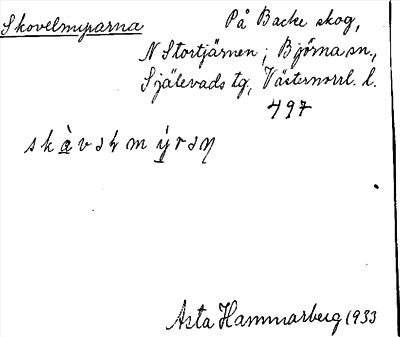 Skovelmyrarna
På Backe skog,
N Stortjärnen; Björna sn.,
Själevads tg., Västernorrl. l.
497
Asta Hammarberg 1933